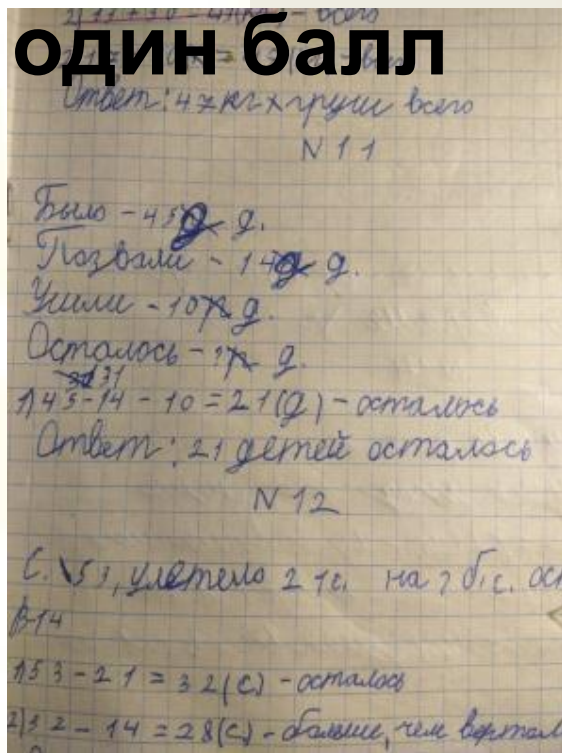 один балл
Ответ: 47кг груш всего
N 11
Было - 45 д.
Позвали - 14 д.
Ушли - 10 д.
Осталось - ? д.
31
1)45-14-10=21(д) - осталось
Ответ: 21 детей осталось
N 12
С. 53, улетело 21с. на ? б. с. ост
В-14
1)53-21=32(с) - осталось
2)32-14=28(с) - больше, чем